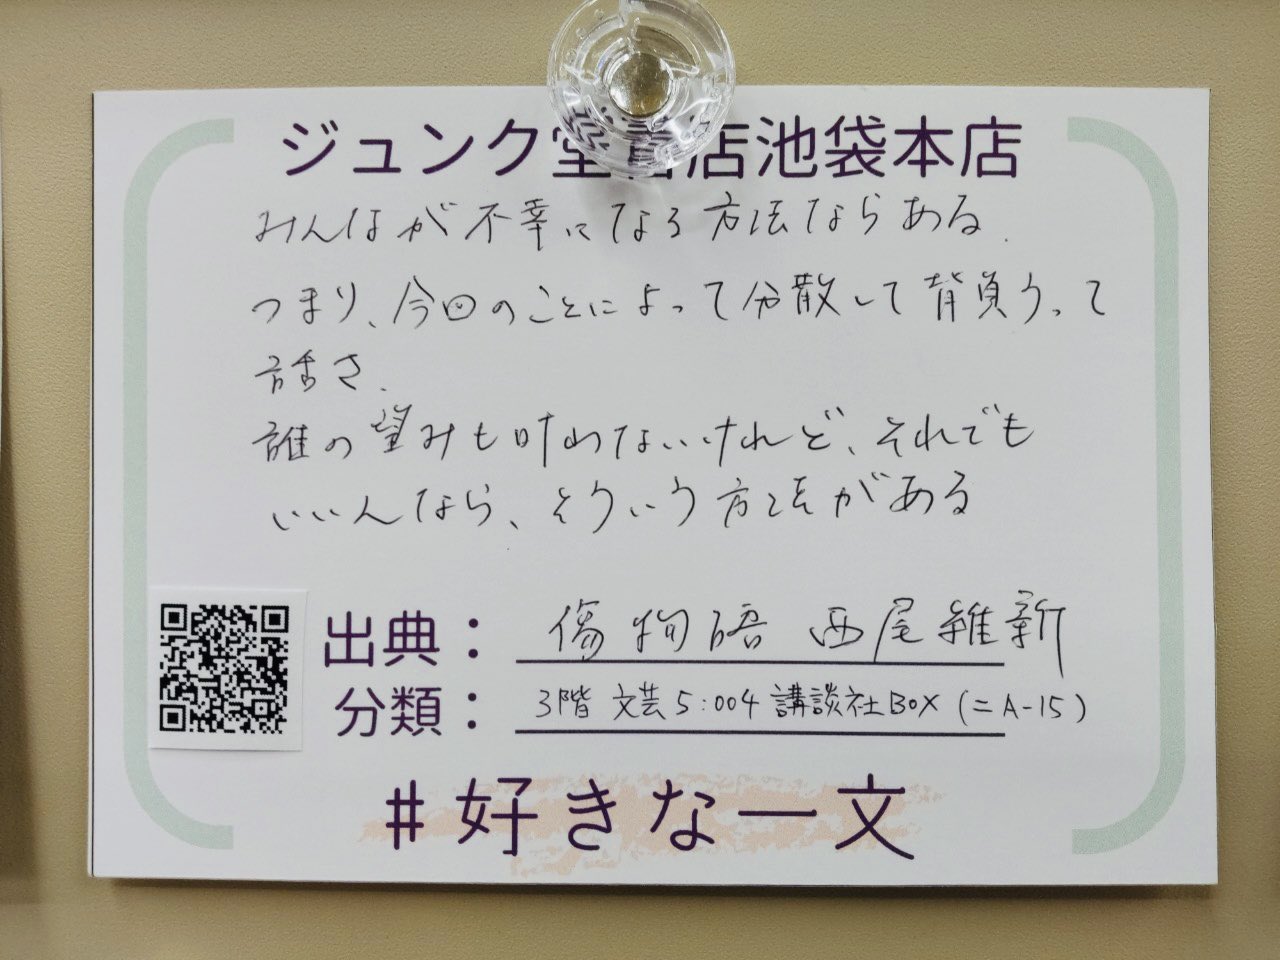 ジュンク堂書店池袋本店
みんなが不幸になる方法ならある.
つまり、今回のことによって分散して背負うって
話さ.
誰の望みも叶わないけれど、それでも
いいんなら、そういう方法がある
出典： 傷物語 西尾維新
分類： 3階 文芸5:004 講談社BOX (ニA-15)
#好きな一文